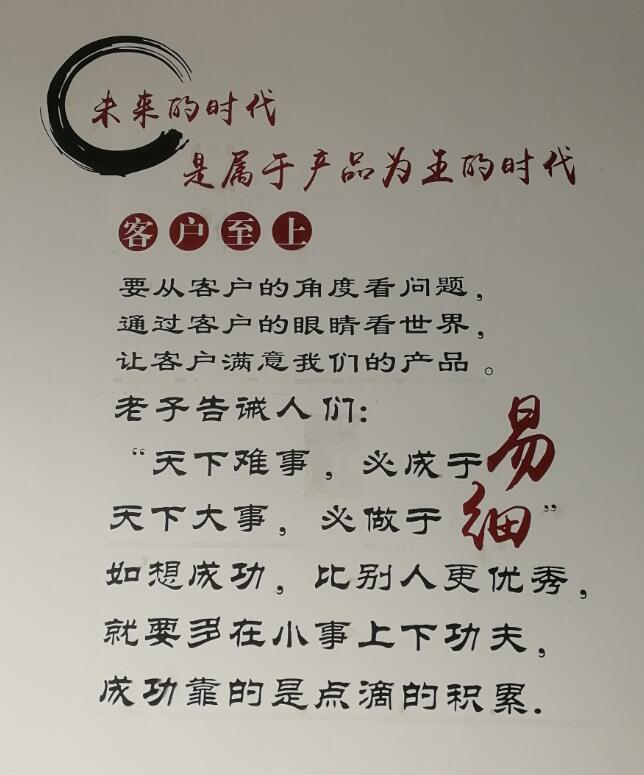 未来的时代
是属于产品为王的时代
客户至上
要从客户的角度看问题，
通过客户的眼睛看世界，
让客户满意我们的产品。
老子告诫人们：
“天下难事，必成于易
天下大事，必做于细”
如想成功，比别人更优秀，
就要多在小事上下功夫，
成功靠的是点滴的积累.